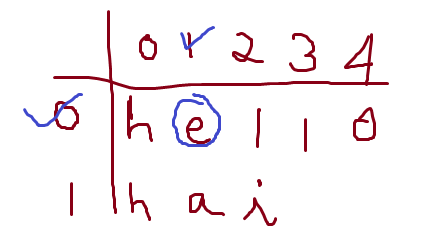 0 1 2 3 4
0 h e l l o
1 h a i